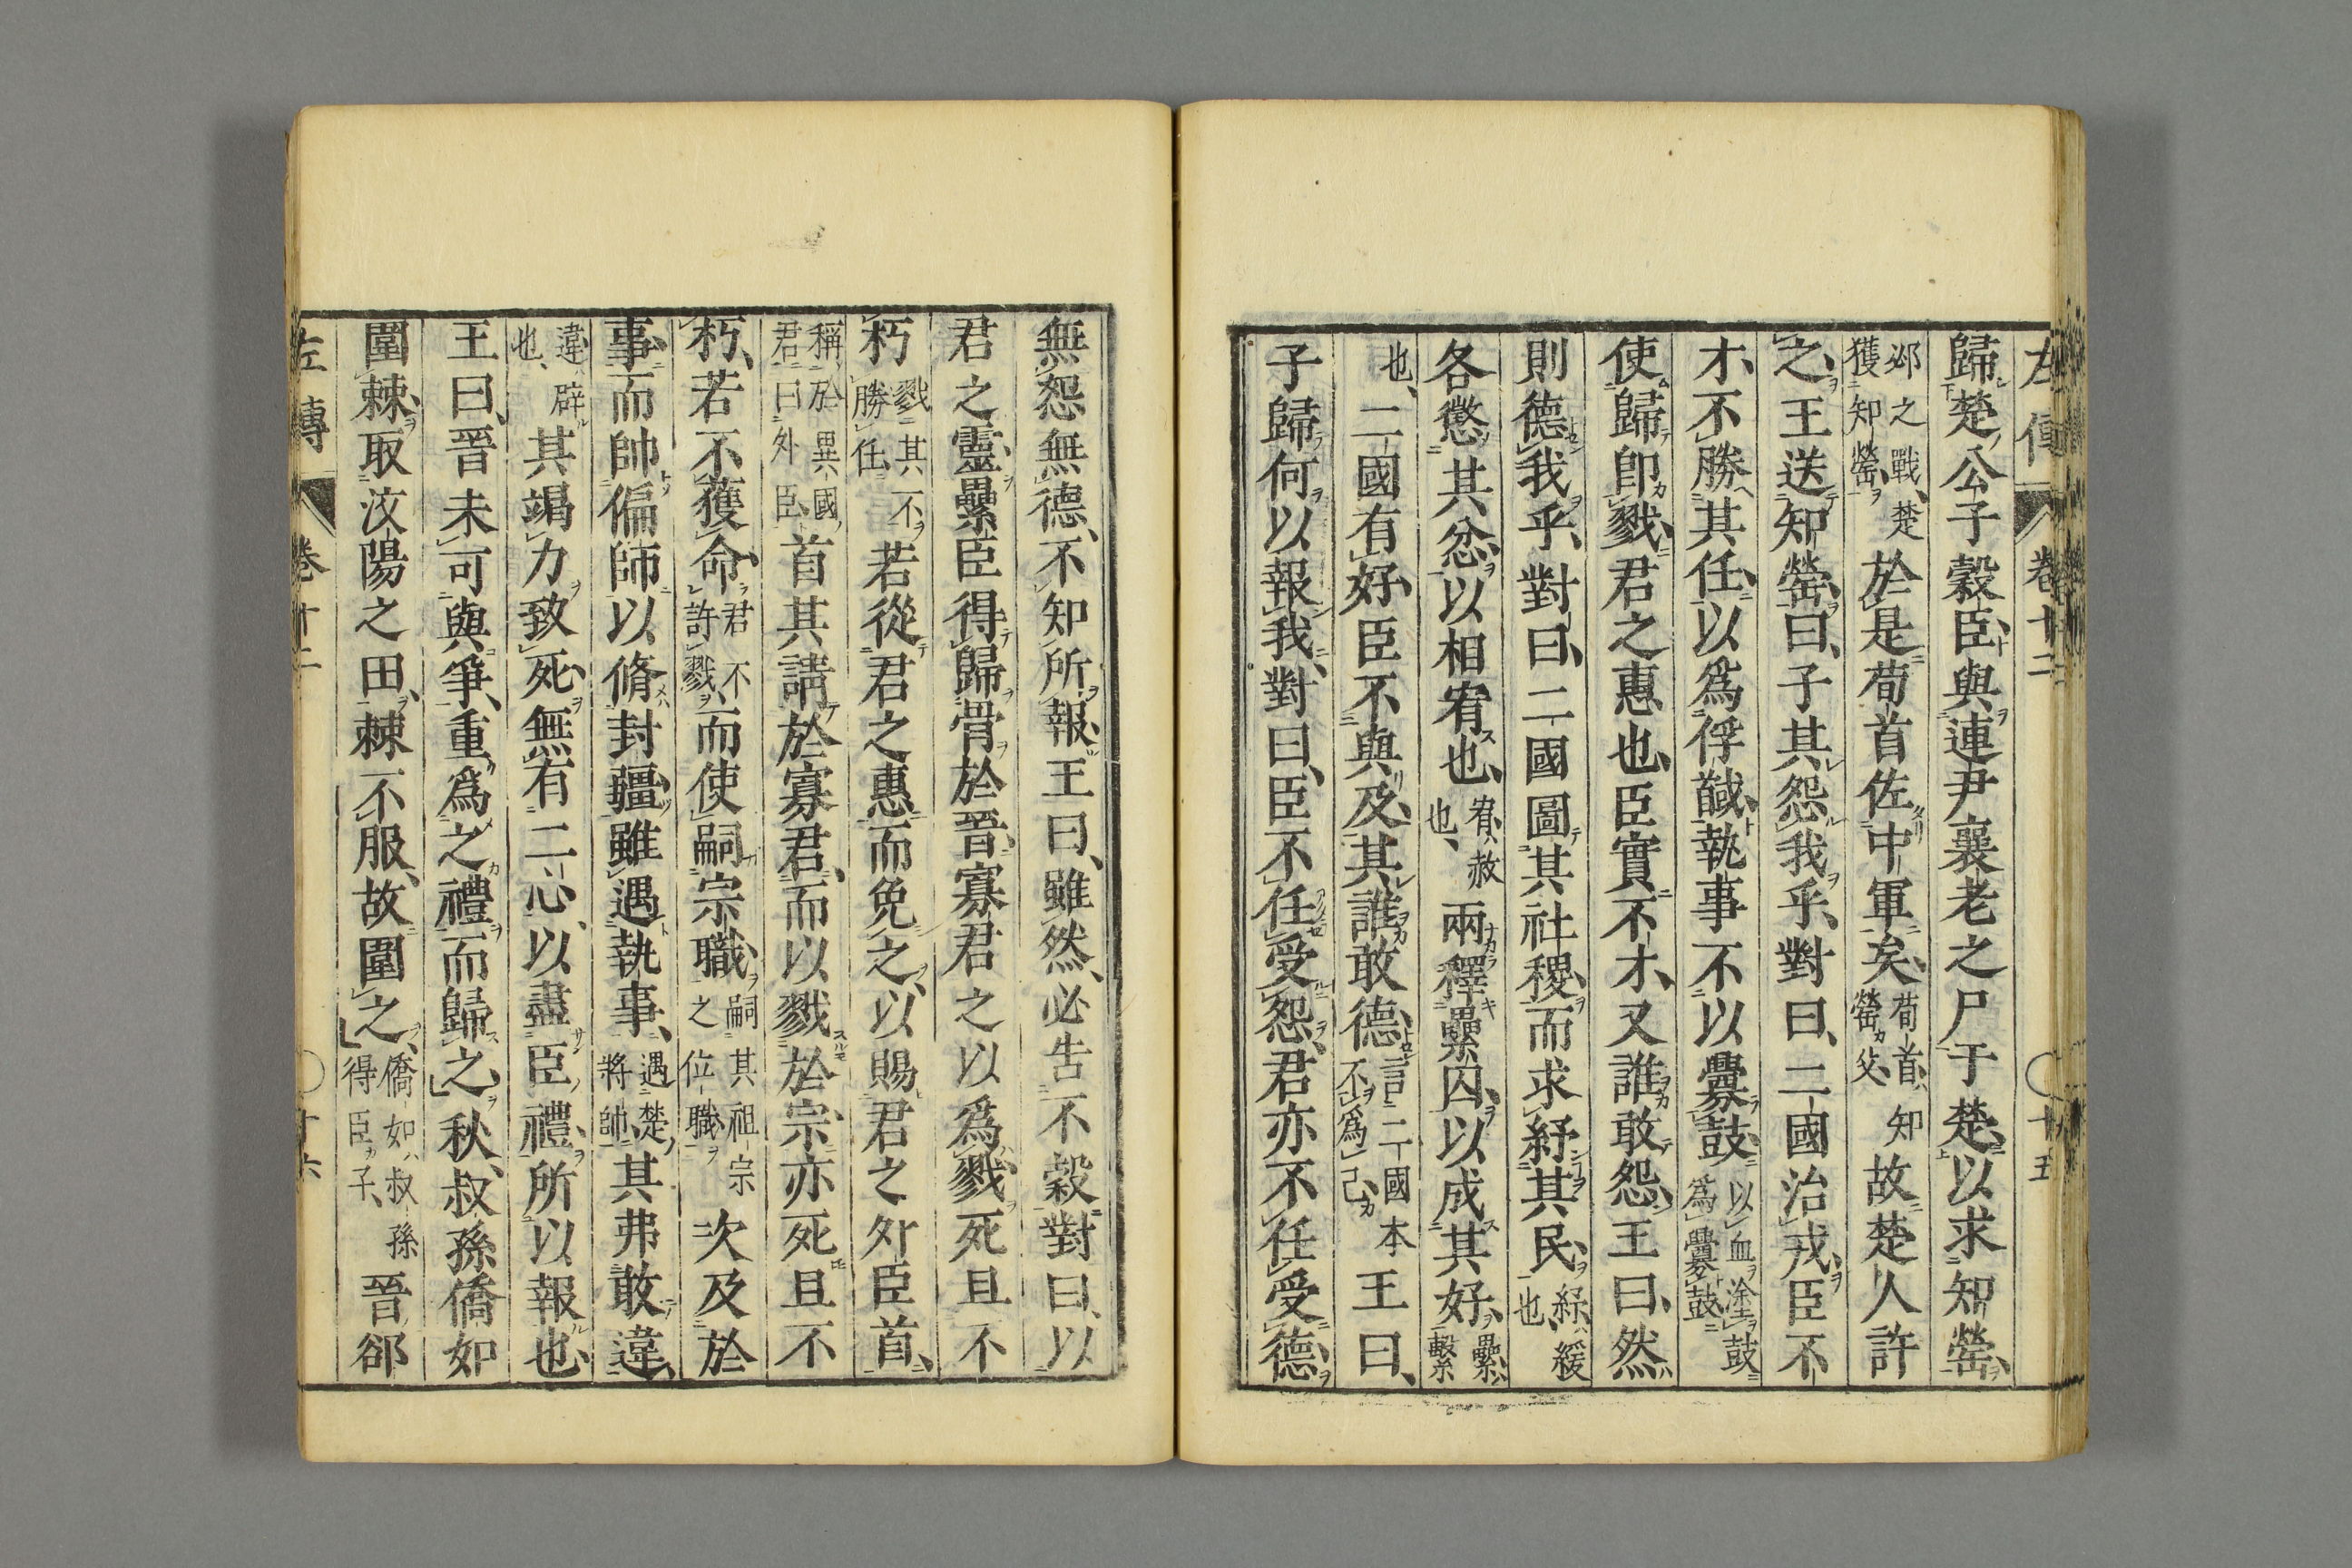 左傳 卷十二 十五
歸楚公子穀臣與連尹襄老之尸于楚以求知罃
邲之戰楚獲知罃於是荀首佐中軍矣荀首知罃父故楚人許
之王送知罃曰子其怨我乎對曰二國治戎臣不
才不勝其任以爲俘馘執事不以釁鼓以血塗鼓爲釁鼓
使歸卽戮君之惠也臣實不才又誰敢怨王曰然
則德我乎對曰二國圖其社稷而求紓其民紓緩也
各懲其忿以相宥也宥赦也兩釋纍囚以成其好纍繫
也二國有好臣不與及其誰敢德言二國本不爲己王曰
子歸何以報我對曰臣不任受怨君亦不任受德
無怨無德不知所報王曰雖然必告不穀對曰以
君之靈纍臣得歸骨於晉寡君之以爲戮死且不
朽戮其不勝任若從君之惠而免之以賜君之外臣首
稱於異國君曰外臣首其請於寡君而以戮於宗亦死且不
朽若不獲命君不許戮而使嗣宗職嗣其祖宗之位職次及於
事而帥偏師以脩封疆雖遇執事遇楚將帥其弗敢違
違辟也其竭力致死無有二心以盡臣禮所以報也
王曰晉未可與爭重爲之禮而歸之秋叔孫僑如
圍棘取汶陽之田棘不服故圍之僑如叔孫得臣子晉郤
左傳 卷十二 十六